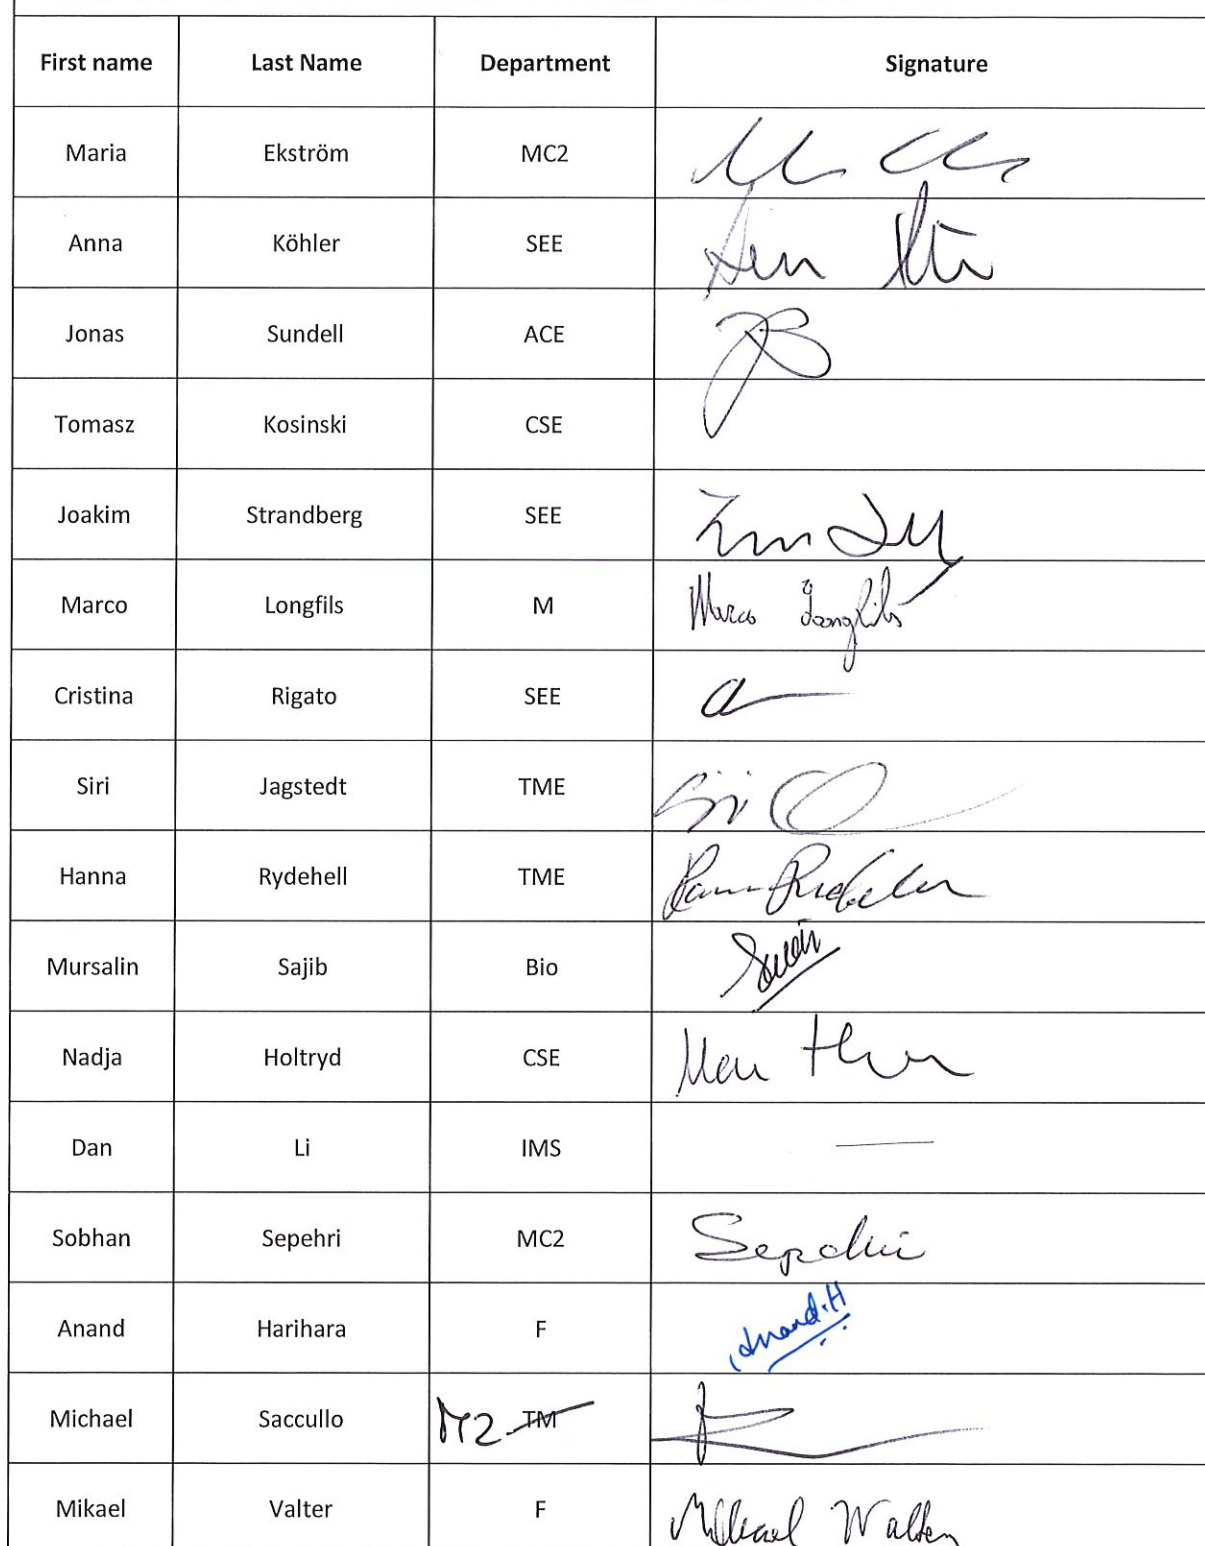 First name Last Name Department Signature
Maria Ekström MC2
Anna Köhler SEE
Jonas Sundell ACE
Tomasz Kosinski CSE
Joakim Strandberg SEE
Marco Longfils M Marco Longfils
Cristina Rigato SEE
Siri Jagstedt TME Siri
Hanna Rydehell TME
Mursalin Sajib Bio
Nadja Holtryd CSE
Dan Li IMS —
Sobhan Sepehri MC2 Sepehri
Anand Harihara F Anand.H
Michael Saccullo M2 TM
Mikael Valter F Mikael Valter